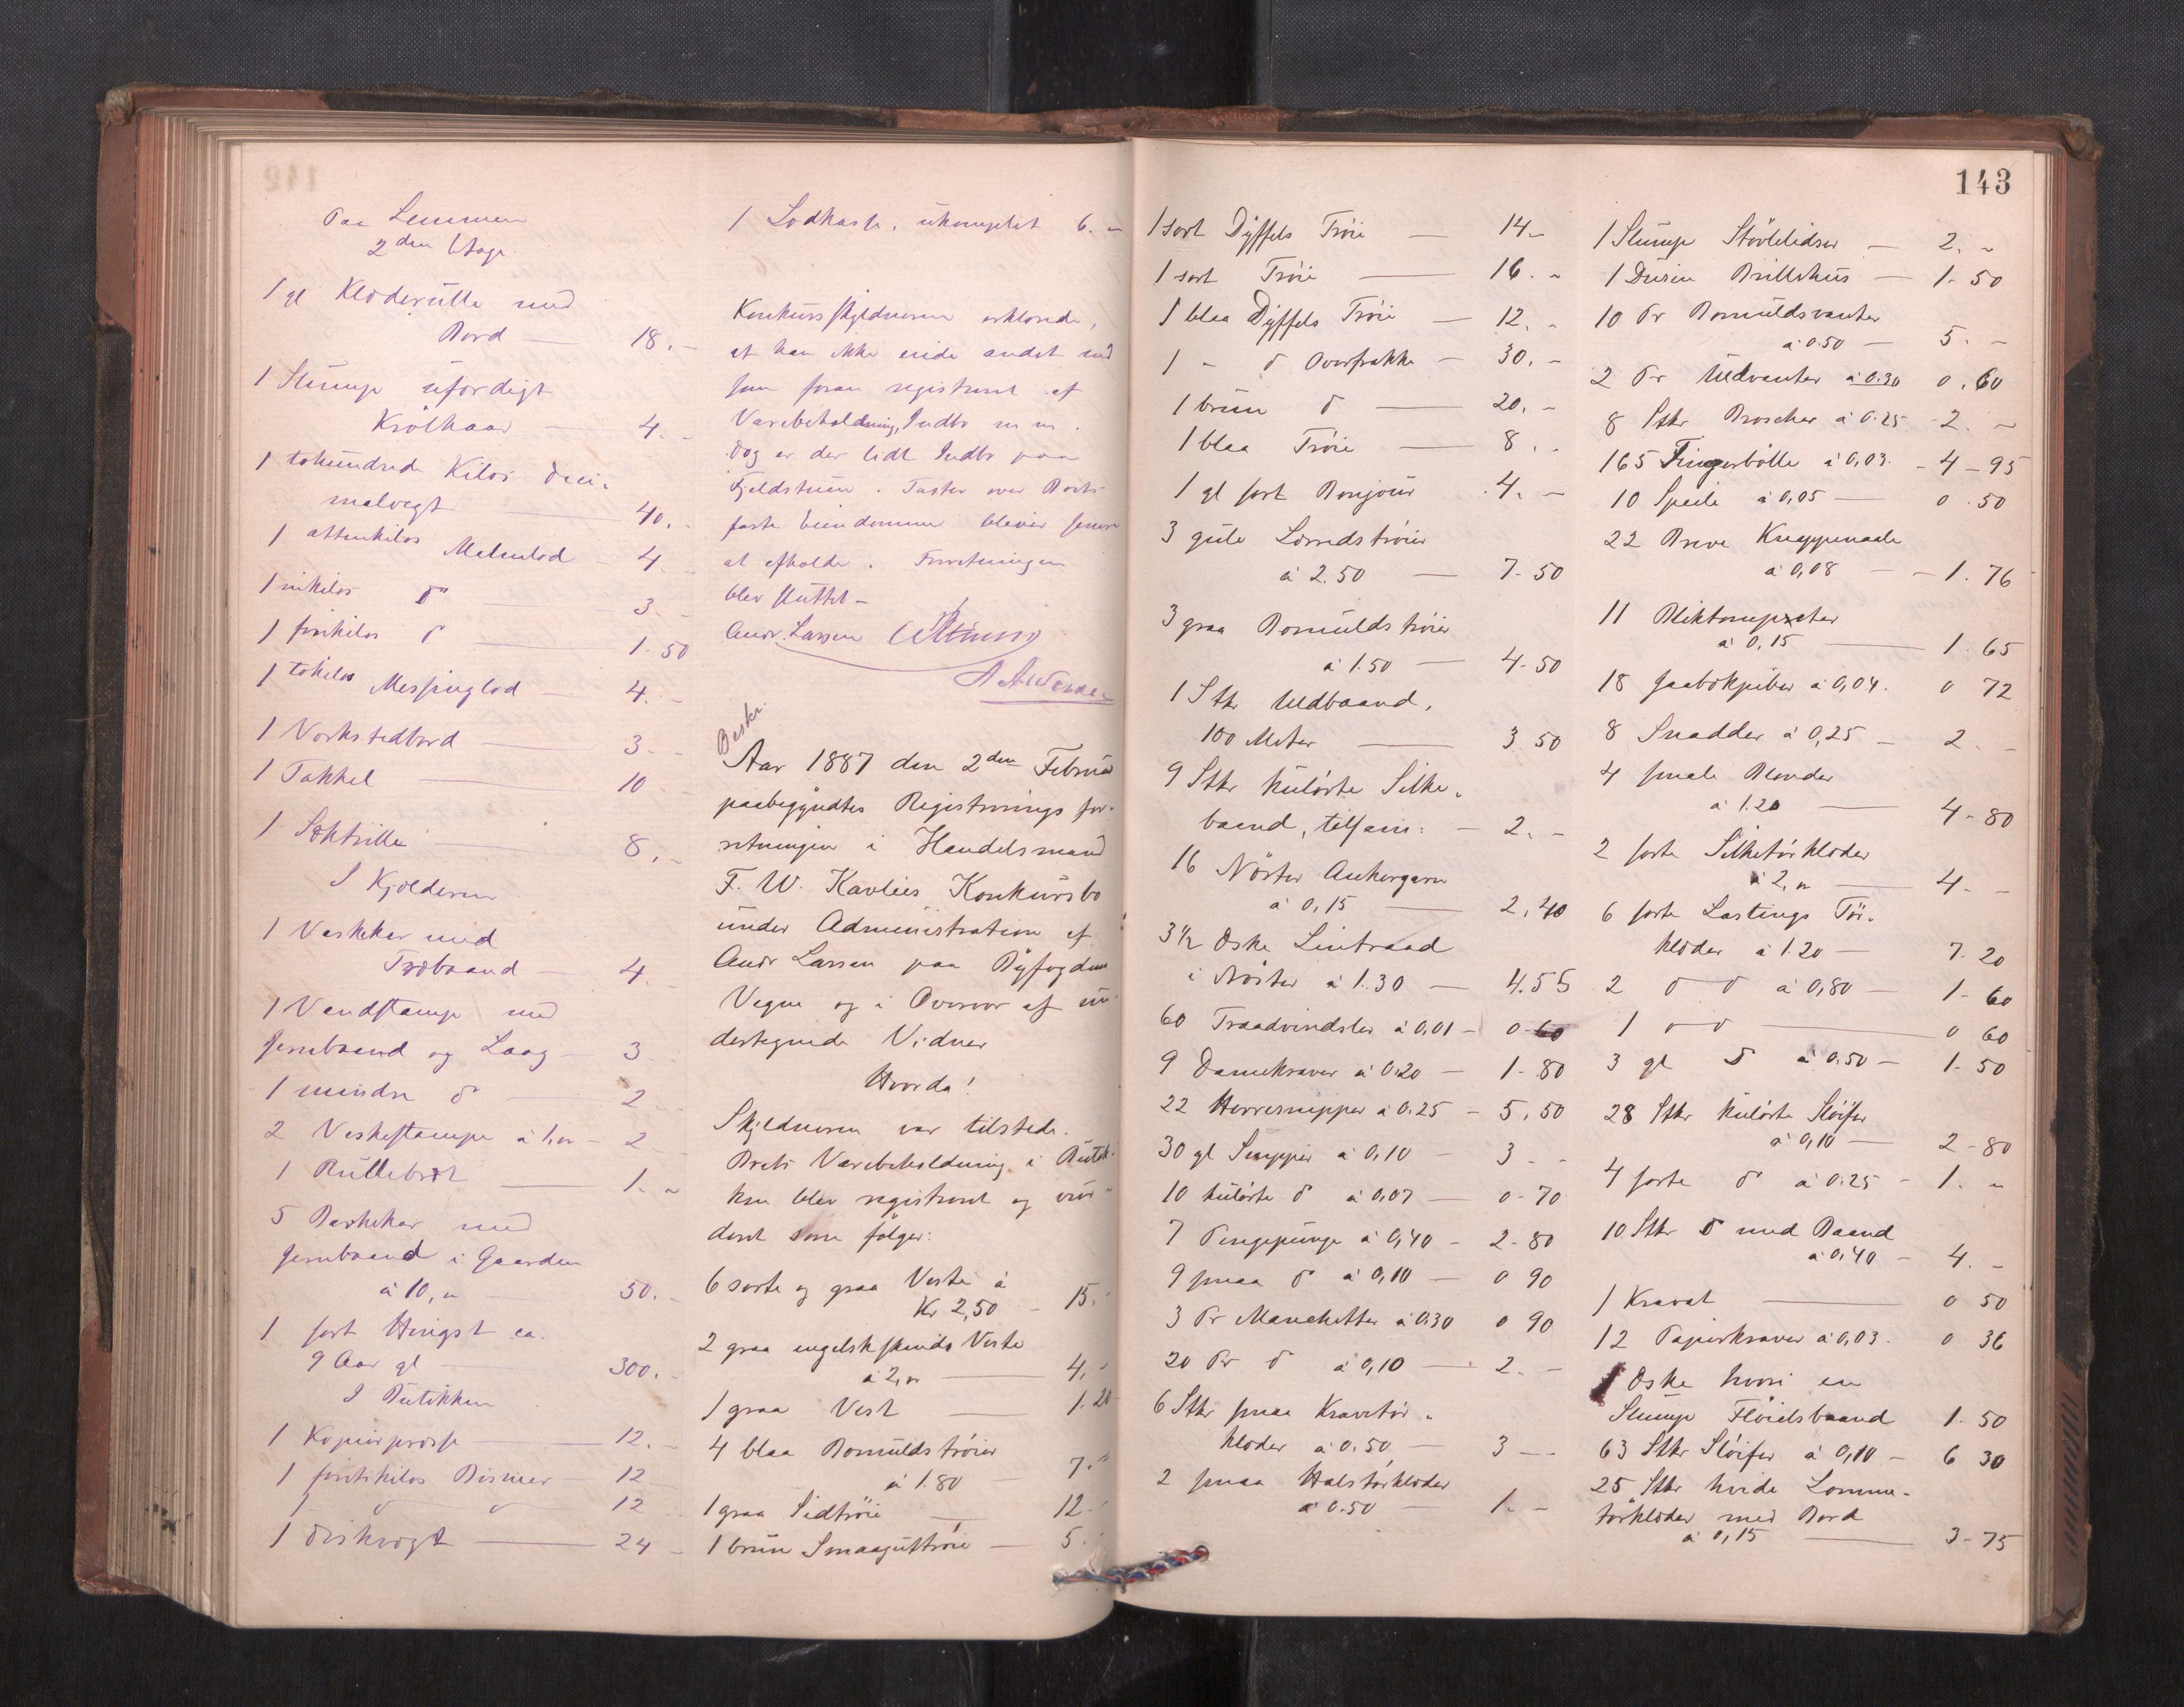 Paa Lemmen
2den Etage.
1 gl Klæderulle med
Bord — 18. -
1 Slump ufærdigt
Krølhaar — 4. -
1 tohundrede Kilos deci-
malvegt — 40. -
1 attenkilos Malmlod — 4. -
1 nikilos do — 3. -
1 firekilos do — 1-50
1 tokilos Messinglod — 4. -
1 Verkstedbord — 3 - -
1 Takkel — 10 -
1 Sækktrille — 8. -
I Kjælderen
1 Vaskekar med
Træbaand — 4. -
1 Vandstamp med
Jernbaand og Laag — 3 -
1 mindre do — 2 -
2 Vaskestampe á 1,„ — 2 -
1 Rullebræt — 1. „
5 Barkekar med
Jernbaand i Gaarden
á 10,„ — 50. -
1 sort Hingst ca.
9 Aar gl — 300. -
I Butikken
1 Kopierpresse — 12. -
1 firtikilos Bismer — 12
1 do do 12
1 Diskvegt — 24 -
1 Lodkasse, ukomplet 6. „
Konkursskyldneren erklærede,
at han ikke eiede andet end
som foran registreret af
Varebeholdning, Indbo m m.
Dog er der lidt Indbo paa
Fjeldstuen. Taxter over Boets
faste Eiendomme bliver senere
at afholde. Forretningen
blev sluttet -
Andr. Larsen
Beskr.
Aar 1887 den 2den Februar
paabegyndtes Registreringsfor-
retningen i Handelsmand
F. W. Kavlies Konkursbo
under Administration af
Andr Larsen paa Byfogdens
Vegne og i Overvær af un-
dertegnede Vidner
Hvorda!
Skyldneren var tilstede.
Boets Varebeholdning i Butik-
ken blev registreret og vur-
deret som følger:
6 sorte og graa Veste á
Kr 2,50 - 15. -
2 graa engelskskinds Veste
á 2,„ — 4, -
1 graa Vest — 1. 20
4 blaa Bomuldstrøier
á 1.80 — 7. -
1 graa Sidtrøie — 12. -
1 brun Smaaguttrøie — 5. -
143
1 sort Dyffels Trøie — 14. -
1 sort Trøie — 16. „
1 blaa Dyffels Trøie — 12. „
1 „ do Overfrakke — 30. -
1 brun do — 20. -
1 blaa Trøie — 8. -
1 gl sort Bonjour 4. -
3 gule Lærredstrøier
á 2.50 — 7-50
3 graa Bomuldstrøier
á 1.50 — 4-50
1 Stk Uldbaand,
100 Meter — 3 50
9 Stkr kulørte Silke-
baand, tilsam: — 2. -
16 Nøster Ankergarn
á 0,15 — 2,40
3 1/2 Æske Lintraad
i Nøster á 1.30 — 4.55
60 Traadvindsler á 0,01 - 0-60
9 Damekraver á 0.20 — 1-80
22 Herresnipper á 0.25 - 5,50
30 gl Snipper á 0,10 - 3 - -
10 kulørte do á 0,07 — 0-70
7 Pengepunge á 0,40 - 2-80
9 smaa do á 0,10 — 0 90
3 Pr Manchetter á 0.30 0 90
20 Pr do á 0,10 — 2. -
6 Stkr smaa Kravetør-
klæder á 0.50 — 3 - -
2 smaa Halstørklæder
á 0.50 — 1. -
1 Slump Støvlelidser — 2. „
1 Dusin Brillehus — 1. 50
10 Pr Bomuldsvanter
á 0.50 — 5. -
2 Pr Uldvanter á 0.30 0. 60
8 Stkr Broscher á 0.25 -2. -
165 Fingerbølle á 0,03. -4-95
10 Speile á 0,05 — 0. 50
22 Breve Knappenaale
á 0,08 — 1. 76
11 Bliktrompeter
á 0,15 — 1. 65
18 Gaabækpiber á 0,04. 0 72
8 Snadder á 0,25 — 2. -
4 smale Blonder
á 1.20 — 4-80
2 sorte Silketørklæder
á 2,„ — 4. -
6 sorte Lastings Tør-
klæder á 1.20 — 7. 20
2 do do á 0,80 — 1- 60
1 do do — 0 60
3 gl do á 0.50 — 1. 50
28 Stkr kulørte Sløifer
á 0,10 — 2-80
4 sorte do á 0.25 - 1. „
10 Stkr do med Baand
á 0,40 — 4. -
1 Kravat — 0 50
12 Papirkraver á 0,03. 0 36
1 Æske hvori en
Slump Fløielsbaand 1. 50
63 Stkr Sløifer á 0,10 - 6 30
25 Stkr hvide Lomme-
tørklæder med Bord
á 0,15 — 3-75